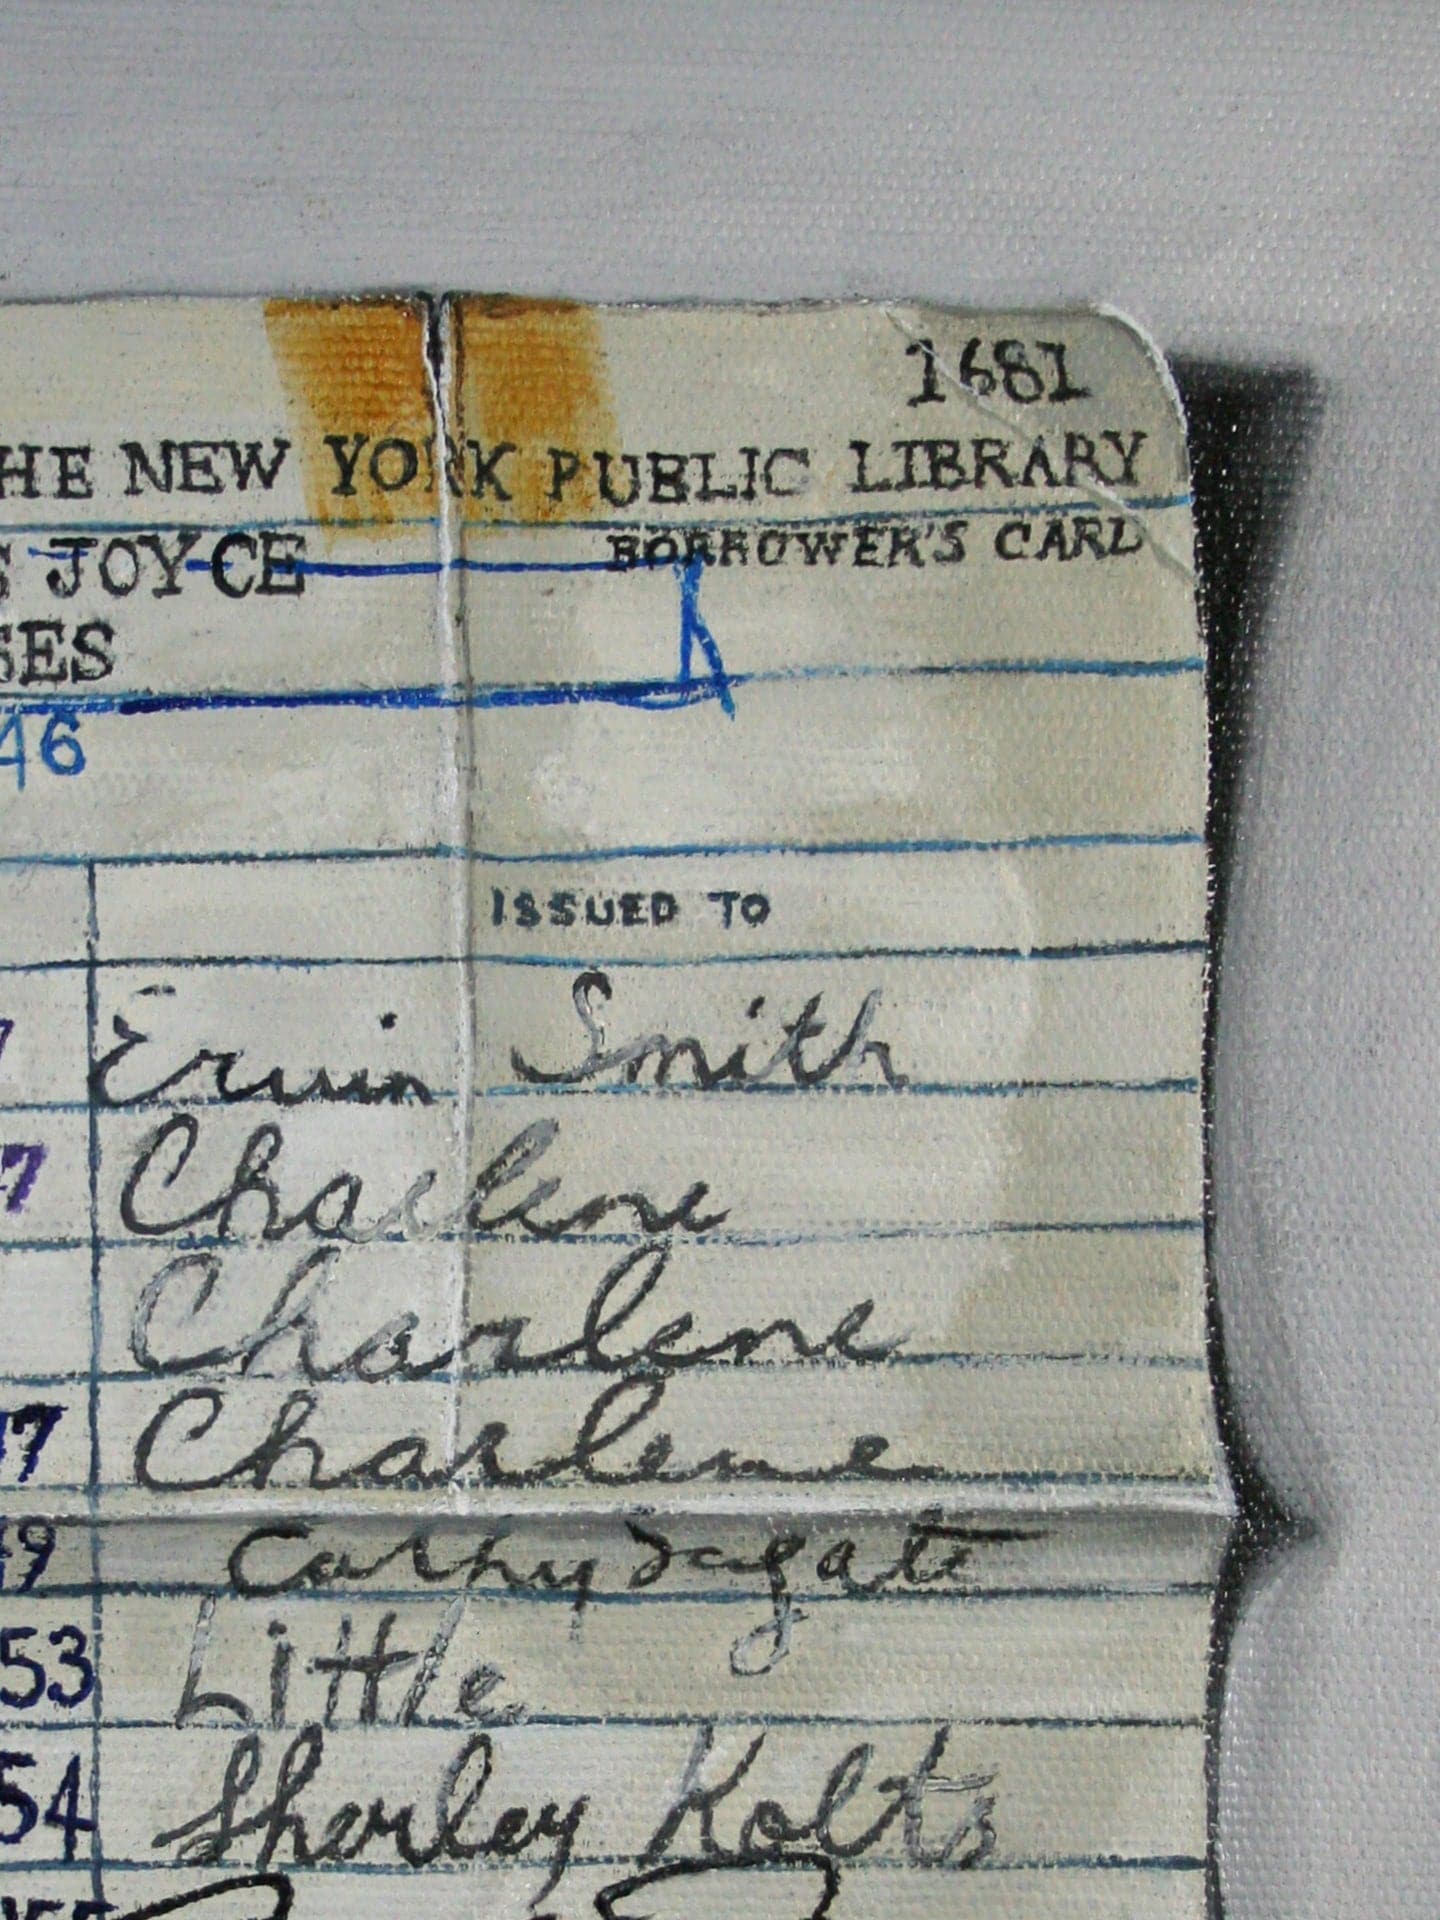 1681
HE NEW YORK PUBLIC LIBRARY
BORROWER'S CARD
S JOYCE
SES
46
ISSUED TO
7 Ervin Smith
7 Charlene
Charlene
17 Charlene
49 Cathy
53 Little
54 Sherley Kolts